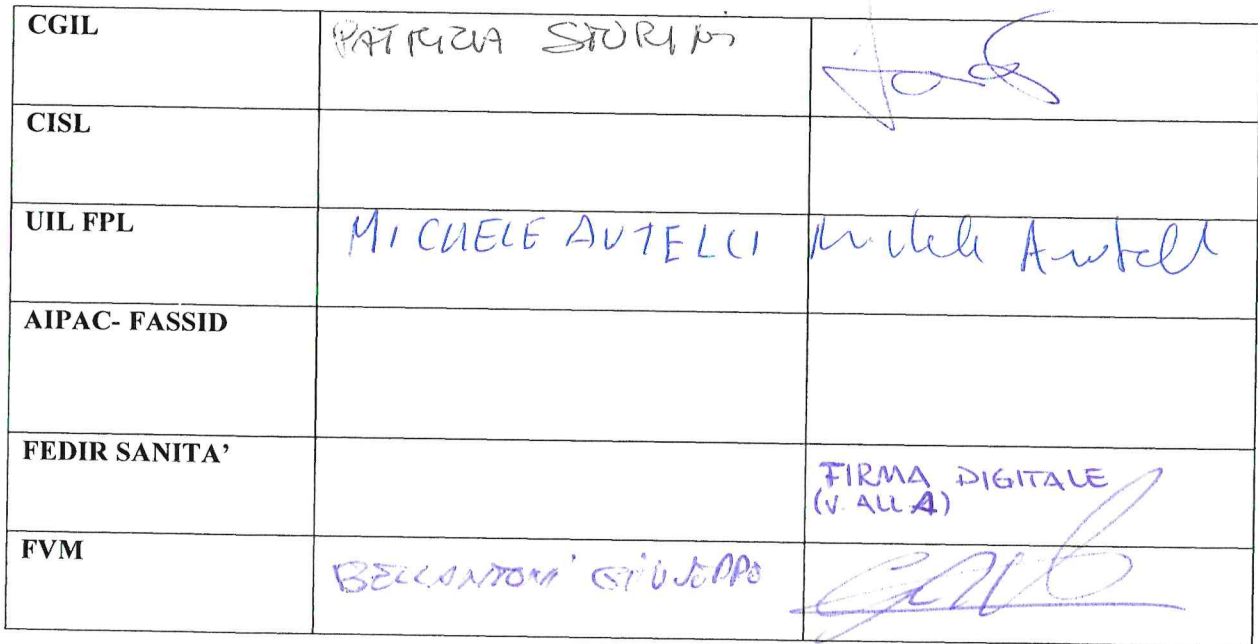 CGIL PATRIZIA STURINI
CISL
UIL FPL MICHELE AUTELLI Michele Autelli
AIPAC- FASSID
FEDIR SANITA’ FIRMA DIGITALE
(V. ALL A)
FVM BELLANTONI GIUSEPPE